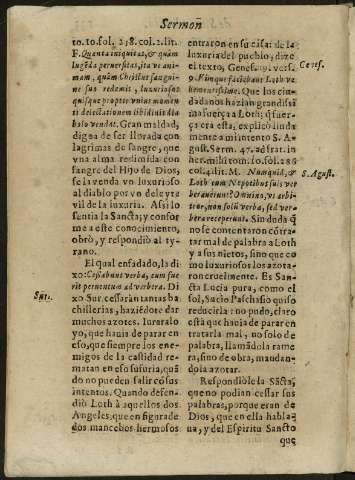 Sermoñ
to.10.fol. 238.col.2.lit.
F. Quanta iniquitas, & quàm
lugẽda peruersitas, ita ve ani-
mam, quàm Christus sangui-
ne suo redemit, luxuriosus
quisque propter vnius momen
ti delectationem libidinis dia
bolo vendat. Gran maldad,
digna de ser llorada con
lagrimas de sangre, que
vna alma redimida con
sangre del Hijo de Dios,
se la venda vn luxurioso
al diablo por vn deleyte
vil de la luxuria. Assi lo
sentia la Sancta; y confor
me a este conocimiento,
obrò, y respondiò al ty-
rano.
El qual enfadado, la di
xo: Cessabunt verba, cum fue
rit peruentum ad verbera. Di
xo Sur. cessaràn tantas ba
chillerias, haziẽdote dar
muchos azotes. Iuraralo
yo, que hauia de parar en
eso, que siempre los ene-
migos de la castidad re-
matan en eso su furia, quã
do no pueden salir cõ sus
intentos. Quando defen-
diò Loth à aquellos dos
Angeles, que en figura de
dos mancebos hermosos
Sur.
entraron en su casa: de la
luxuria del pueblo, dize
el texto, Genes. 19. vers.
9. Vimque faciebant Loth ve
hementissimè. Que los ciu
dadanos hazian grandissi
ma fuerça a Loth; q̃ fuer-
ça era esta, explicò linda
mente a mi intento S. A-
gust. Serm. 47. ad frat. in
her. mihi tom. 10. fol. 286
col. 4. lit. M. Nunquid, &
Loth cum Nepotibus suis ver
berauerunt? Omnino, vt arbi-
tror, non solũ verba, sed ver-
bera receperunt. Sin duda q̃
no se contentaron cõ tra-
tar mal de palabra a Loth
y a sus nietos, sino que co
mo luxuriosos los azota-
ron cruelmente. Es San-
cta Lucia pura, como el
sol, Sucio Paschasio quiso
reducirla: no pudo, claro
està que hauia de parar en
tratarla mal, no solo de
palabra, llamãdola rame
ra, sino de obra, mandan-
dola azotar.
Respondiòle la Sãcta,
que no podian cessar sus
palabras, porque eran de
Dios, que en ella hablaꝗ
ua, y del Espiritu Sancto
que
Genes.
S. Agust.